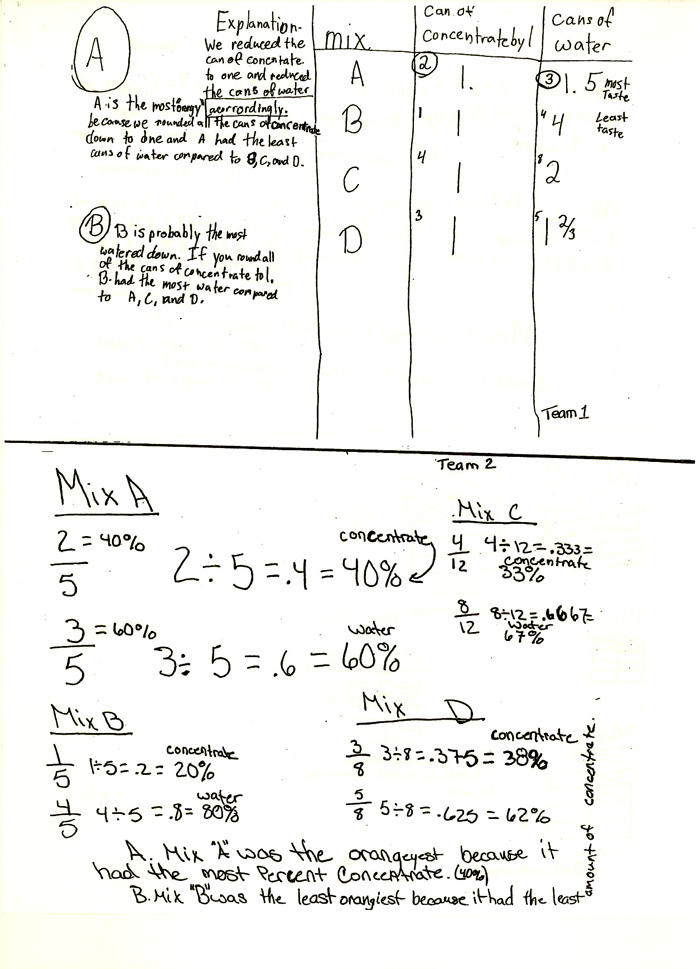 A
Explanation-
We reduced the
can of concntate
to one and reduced
the cans of water
accrordingly.
A is the most orangy
because we rounded all the cans of concentrate
down to one and A had the least
cans of water compared to B, C, and D.
B B is probably the most
watered down. If you round all
of the cans of concentrate to 1,
B. had the most water compared
to A, C, and D.
mix
Can of
Concentrate by 1
Cans of
water
A 2 1. 3 1.5 most
Taste
B 1 1 4 4 Least
taste
C 4 1 8 2
D 3 1 5 1 2/3
Team 1
Team 2
Mix A
2/5 = 40% 2÷5 = .4 = 40%
concentrate
3/5 = 60% 3÷ 5 = .6 = 60%
water
Mix C
4/12 4÷12 = .333 =
concentrate
33%
8/12 8÷12 = .6667=
water
67%
Mix B
1/5 1÷5 = .2 = 20%
concentrate
4/5 4÷5 = .8= 80%
water
Mix D
concentrate
3/8 3÷8 = .375 = 38%
5/8 5÷8 = .625 = 62%
A. Mix "A" was the orangeyest because it
had the most Percent Concentrate. (40%)
B. Mix "B" was the least orangiest because it had the least
amount of concentrate.